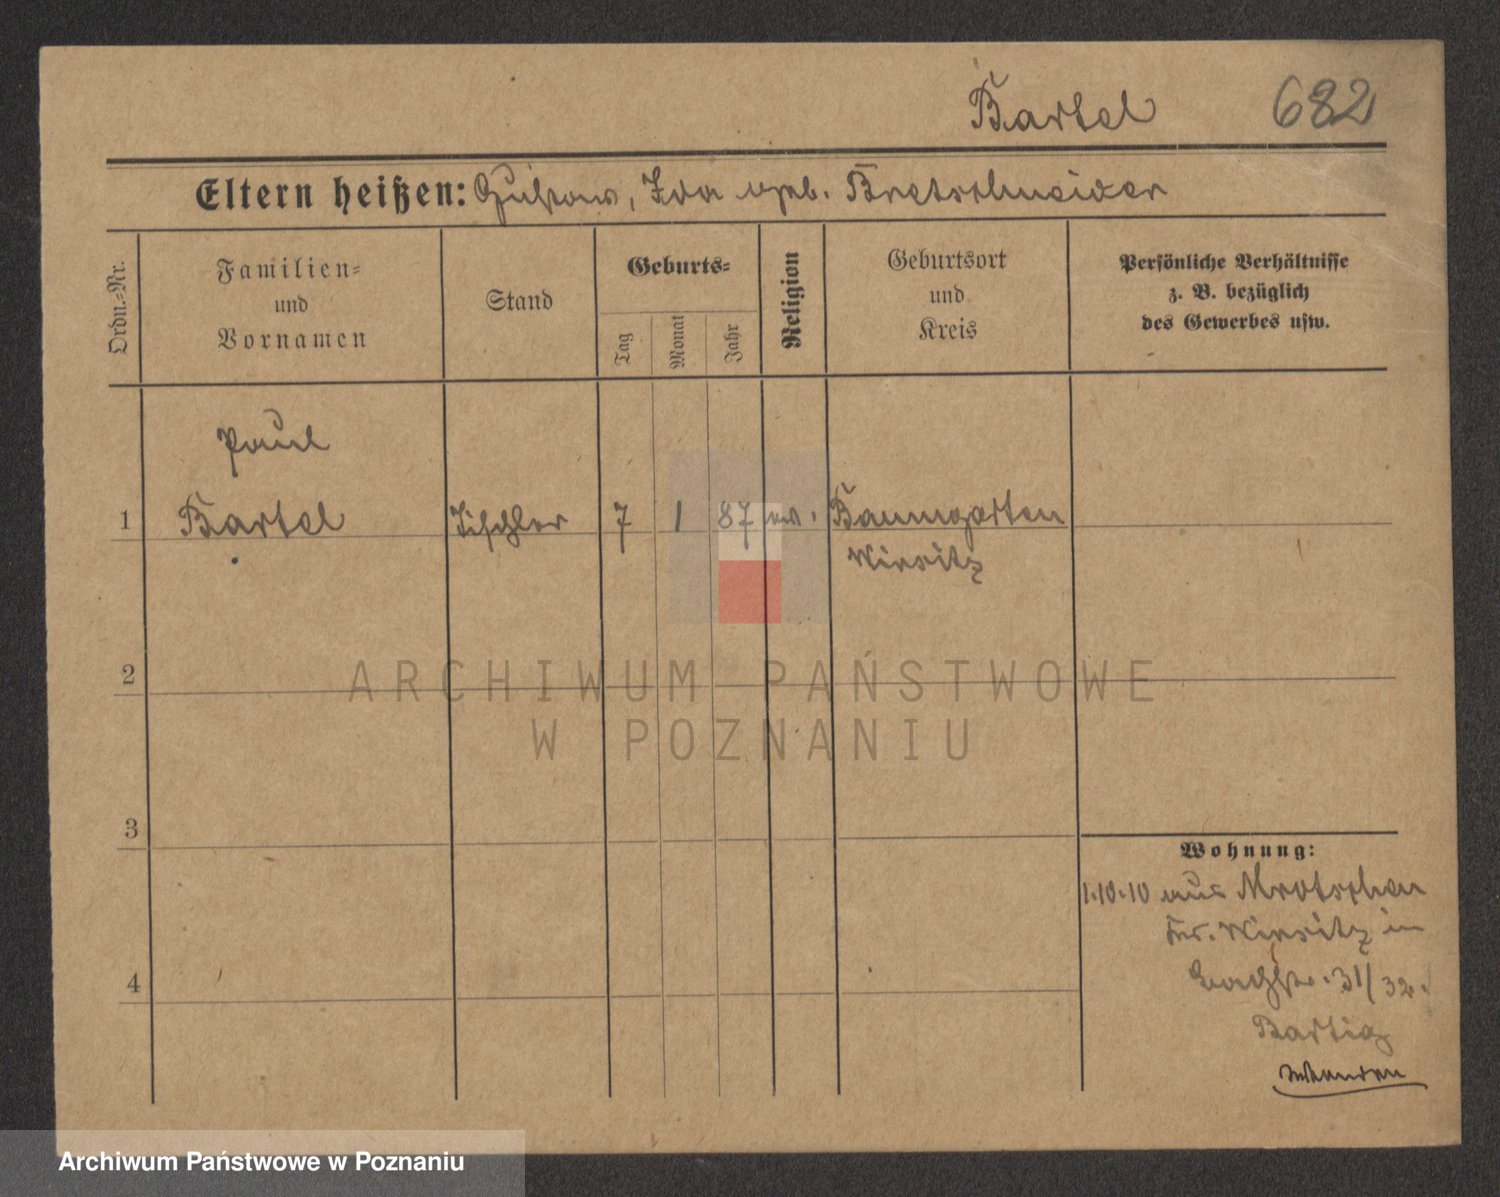 Bartel 682
Eltern heißen: Gustav, Ida geb. Bretschneider
Ordn.-Nr.
Familien-
und
Vornamen
Stand
Geburts-
Tag
Monat
Jahr
Religion
Geburtsort
und
Kreis
Persönliche Verhältnisse
z. B. bezüglich
des Gewerbes usw.
Paul
1 Bartel Tischler 7 1 87 ev. Baumgarten
Wirsitz
2
3
4
Wohnung:
1.10.10 aus Mrotschen
Kr. Wirsitz in
31/32.
Bartig
ARCHIWUM PAŃSTWOWE
W POZNANIU
Archiwum Państwowe w Poznaniu